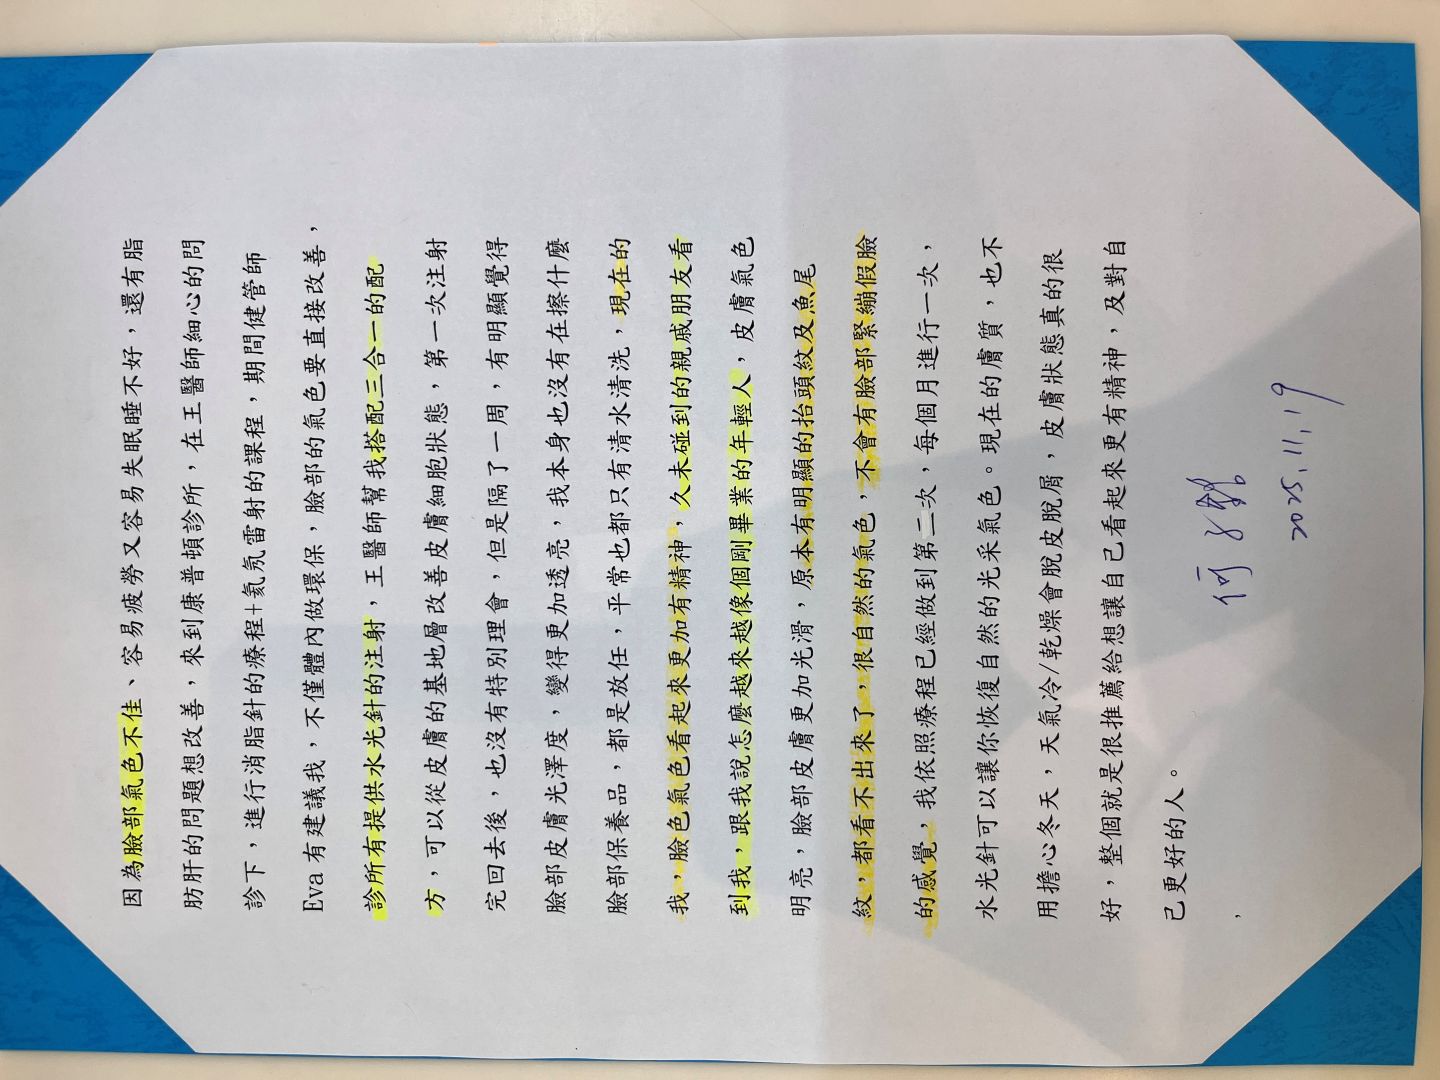 因為臉部氣色不佳、容易疲勞又容易失眠睡不好，還有脂
肪肝的問題想改善，來到康普頓診所，在王醫師細心的問
診下，進行消脂針的療程+氦氖雷射的課程，期間健管師
Eva有建議我，不僅體內做環保，臉部的氣色要直接改善，
診所有提供水光針的注射，王醫師幫我搭配三合一的配
方，可以從皮膚的基地層改善皮膚細胞狀態，第一次注射
完回去後，也沒有特別理會，但是隔了一周，有明顯覺得
臉部皮膚光澤度，變得更加透亮，我本身也沒有在擦什麼
臉部保養品，都是放任，平常也都只有清水清洗，現在的
我，臉色氣色看起來更加有精神，久未碰到的親戚朋友看
到我，跟我說怎麼越來越像個剛畢業的年輕人，皮膚氣色
明亮，臉部皮膚更加光滑，原本有明顯的抬頭紋及魚尾
紋，都看不出來了，很自然的氣色，不會有臉部緊繃假臉
的感覺，我依照療程已經做到第二次，每個月進行一次，
水光針可以讓你恢復自然的光采氣色。現在的膚質，也不
用擔心冬天，天氣冷/乾燥會脫皮脫屑，皮膚狀態真的很
好，整個就是很推薦給想讓自己看起來更有精神，及對自
己更好的人。
，
何
2025.11.19